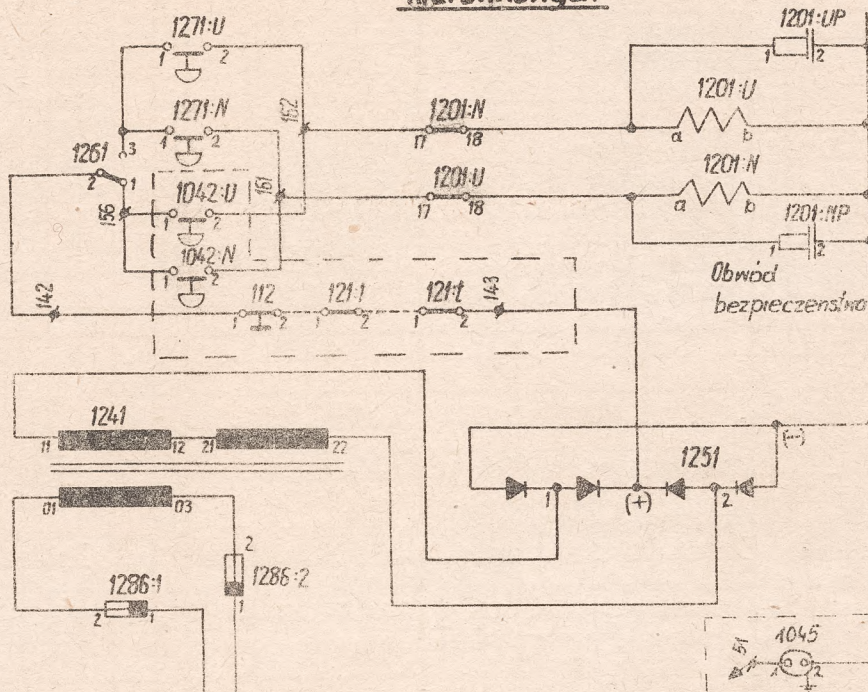 1271:U
1 2
1201:UP
1 2
1271:N
1 2
162
1201:N
17 18
1201:U
a b
1261
3
2 1
1042:U
1 2
161
1201:U
17 18
1201:N
a b
156
1042:N
1 2
1201:NP
1 2
Obwód
bezpieczeństwa
142
112
1 2
121:1
1 2
121:t
1 2
143
1241
11 12 21 22
(-)
1251
1 (+) 2
01 03
2
1286:2
1
1286:1
2 1
51
1045
1 2